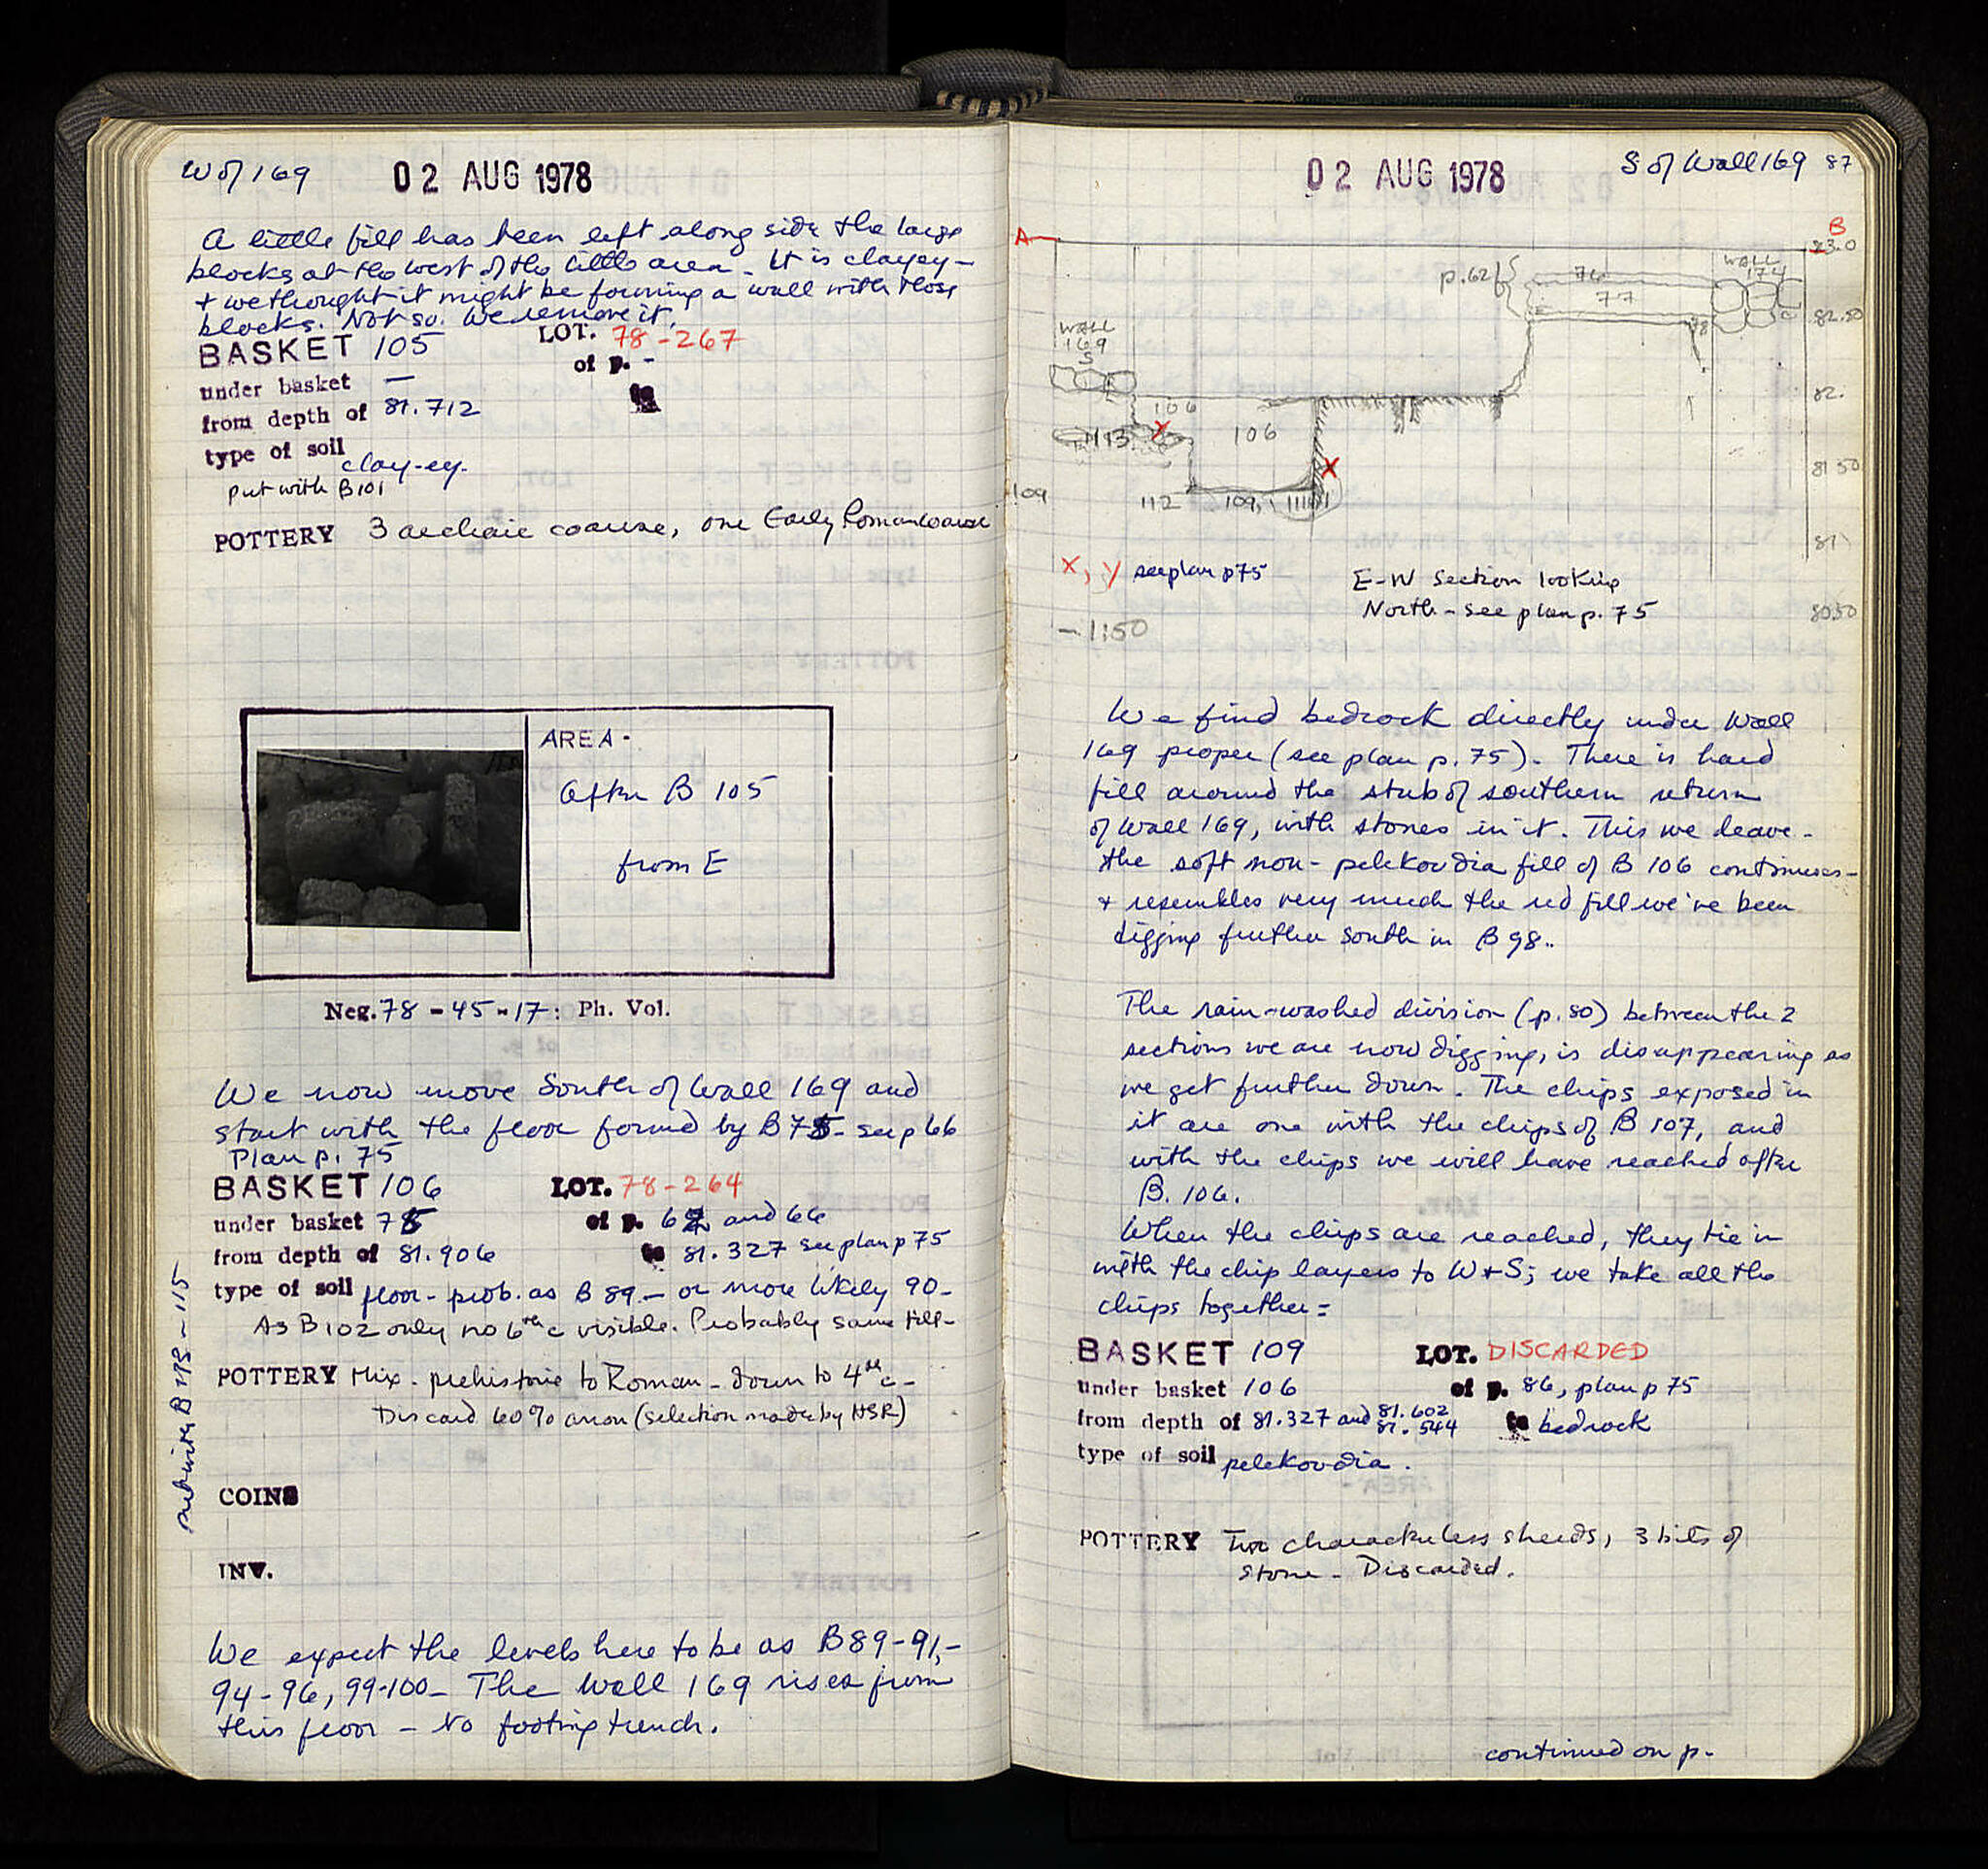 W of 169
02 AUG 1978
A little fill has been left along side the large
blocks at the west of the little area - It is clayey -
+ we thought it might be forming a wall with those
blocks. Not so. We remove it.
BASKET 105 LOT. 78-267
under basket — of p. -
from depth of 81.712 to
type of soil
clay-ey.
Put with B101
POTTERY 3 archaic coarse, one Early Roman coarse
AREA -
After B 105
from E
Neg. 78-45-17: Ph. Vol.
We now move South of Wall 169 and
start with the floor formed by B 75 - see p 66
Plan p. 75
BASKET 106 LOT. 78-264
under basket 75 of p. 62 and 66
from depth of 81.906 to 81.327 see plan p 75
type of soil floor - prob. as B 89 - or more likely 90 -
As B102 only no 6th c visible. Probably same fill -
POTTERY Mix - prehistoric to Roman - down to 4th c -
Discard 60% anon (selection made by HSR)
COINS
INV.
We expect the levels here to be as B 89-91, -
94-96, 99-100 - The Wall 169 rises from
this floor - No footing trench.
put with B - 115
02 AUG 1978
S of Wall 169 87
A
B
23.0
WALL
174
p. 62
76
77
78
82.50
WALL
169
S
82.
106
106
113
X
X
81 50
109
112
109,
81
X, y see plan p 75
E-W Section looking
North - see plan p. 75
80.50
- 1:50
We find bedrock directly under Wall
169 proper (see plan p. 75). There is hard
fill around the stub of southern return
of Wall 169, with stones in it. This we leave -
the soft non-pelekoudia fill of B 106 continues -
+ resembles very much the red fill we've been
digging further South in B 98..
The rain-washed division (p. 80) between the 2
sections we are now digging, is disappearing as
we get further down. The chips exposed in
it are one with the chips of B 107, and
with the chips we will have reached after
B. 106.
When the chips are reached, they tie in
with the chip layers to W + S; we take all the
chips together =
BASKET 109 LOT. DISCARDED
under basket 106 of p. 86, plan p 75
from depth of 81.327 and 81.602 81.544 to bedrock
type of soil pelekoudia.
POTTERY Two characterless sherds, 3 bits of
stone - Discarded.
continued on p.